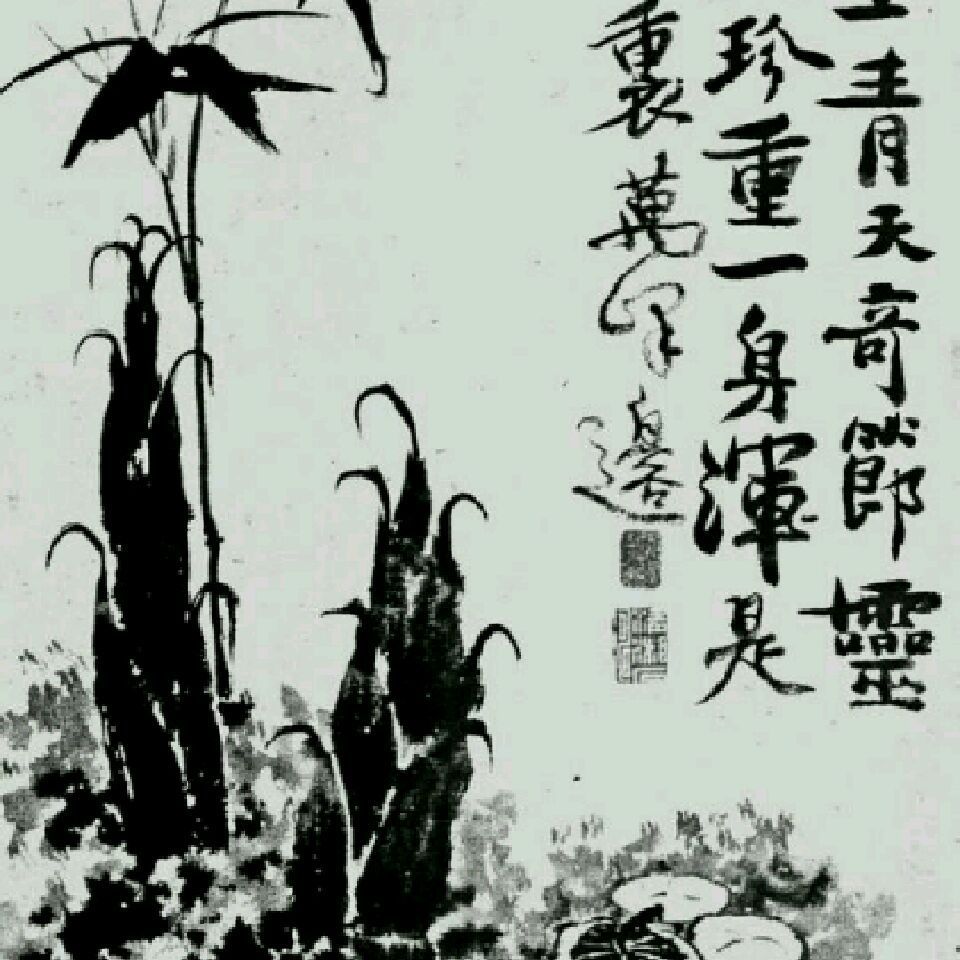 青天奇節靈
珍重一身渾是
裏萬邊